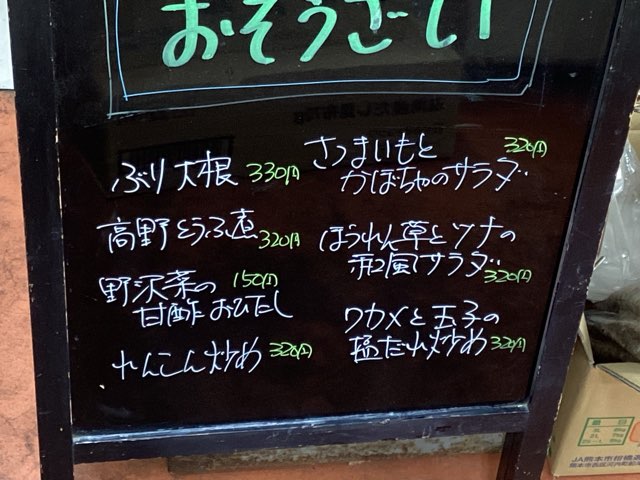 おそうざい
ぶり大根 330円
高野とうふ煮 320円
野沢菜の 150円
甘酢おひたし
れんこん炒め 320円
さつまいもと 320円
かぼちゃのサラダ
ほうれん草とツナの
和風サラダ 320円
ワカメと玉子の
塩だれ炒め 320円
JA熊本市柑橘